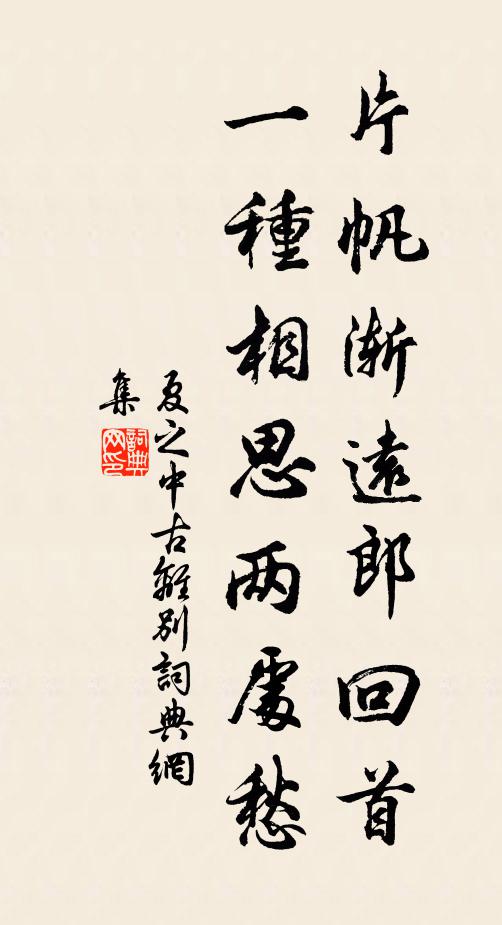 片帆渐遠郎回首
一種相思两處愁
夏之中古離別詞典網
集
詞典网印